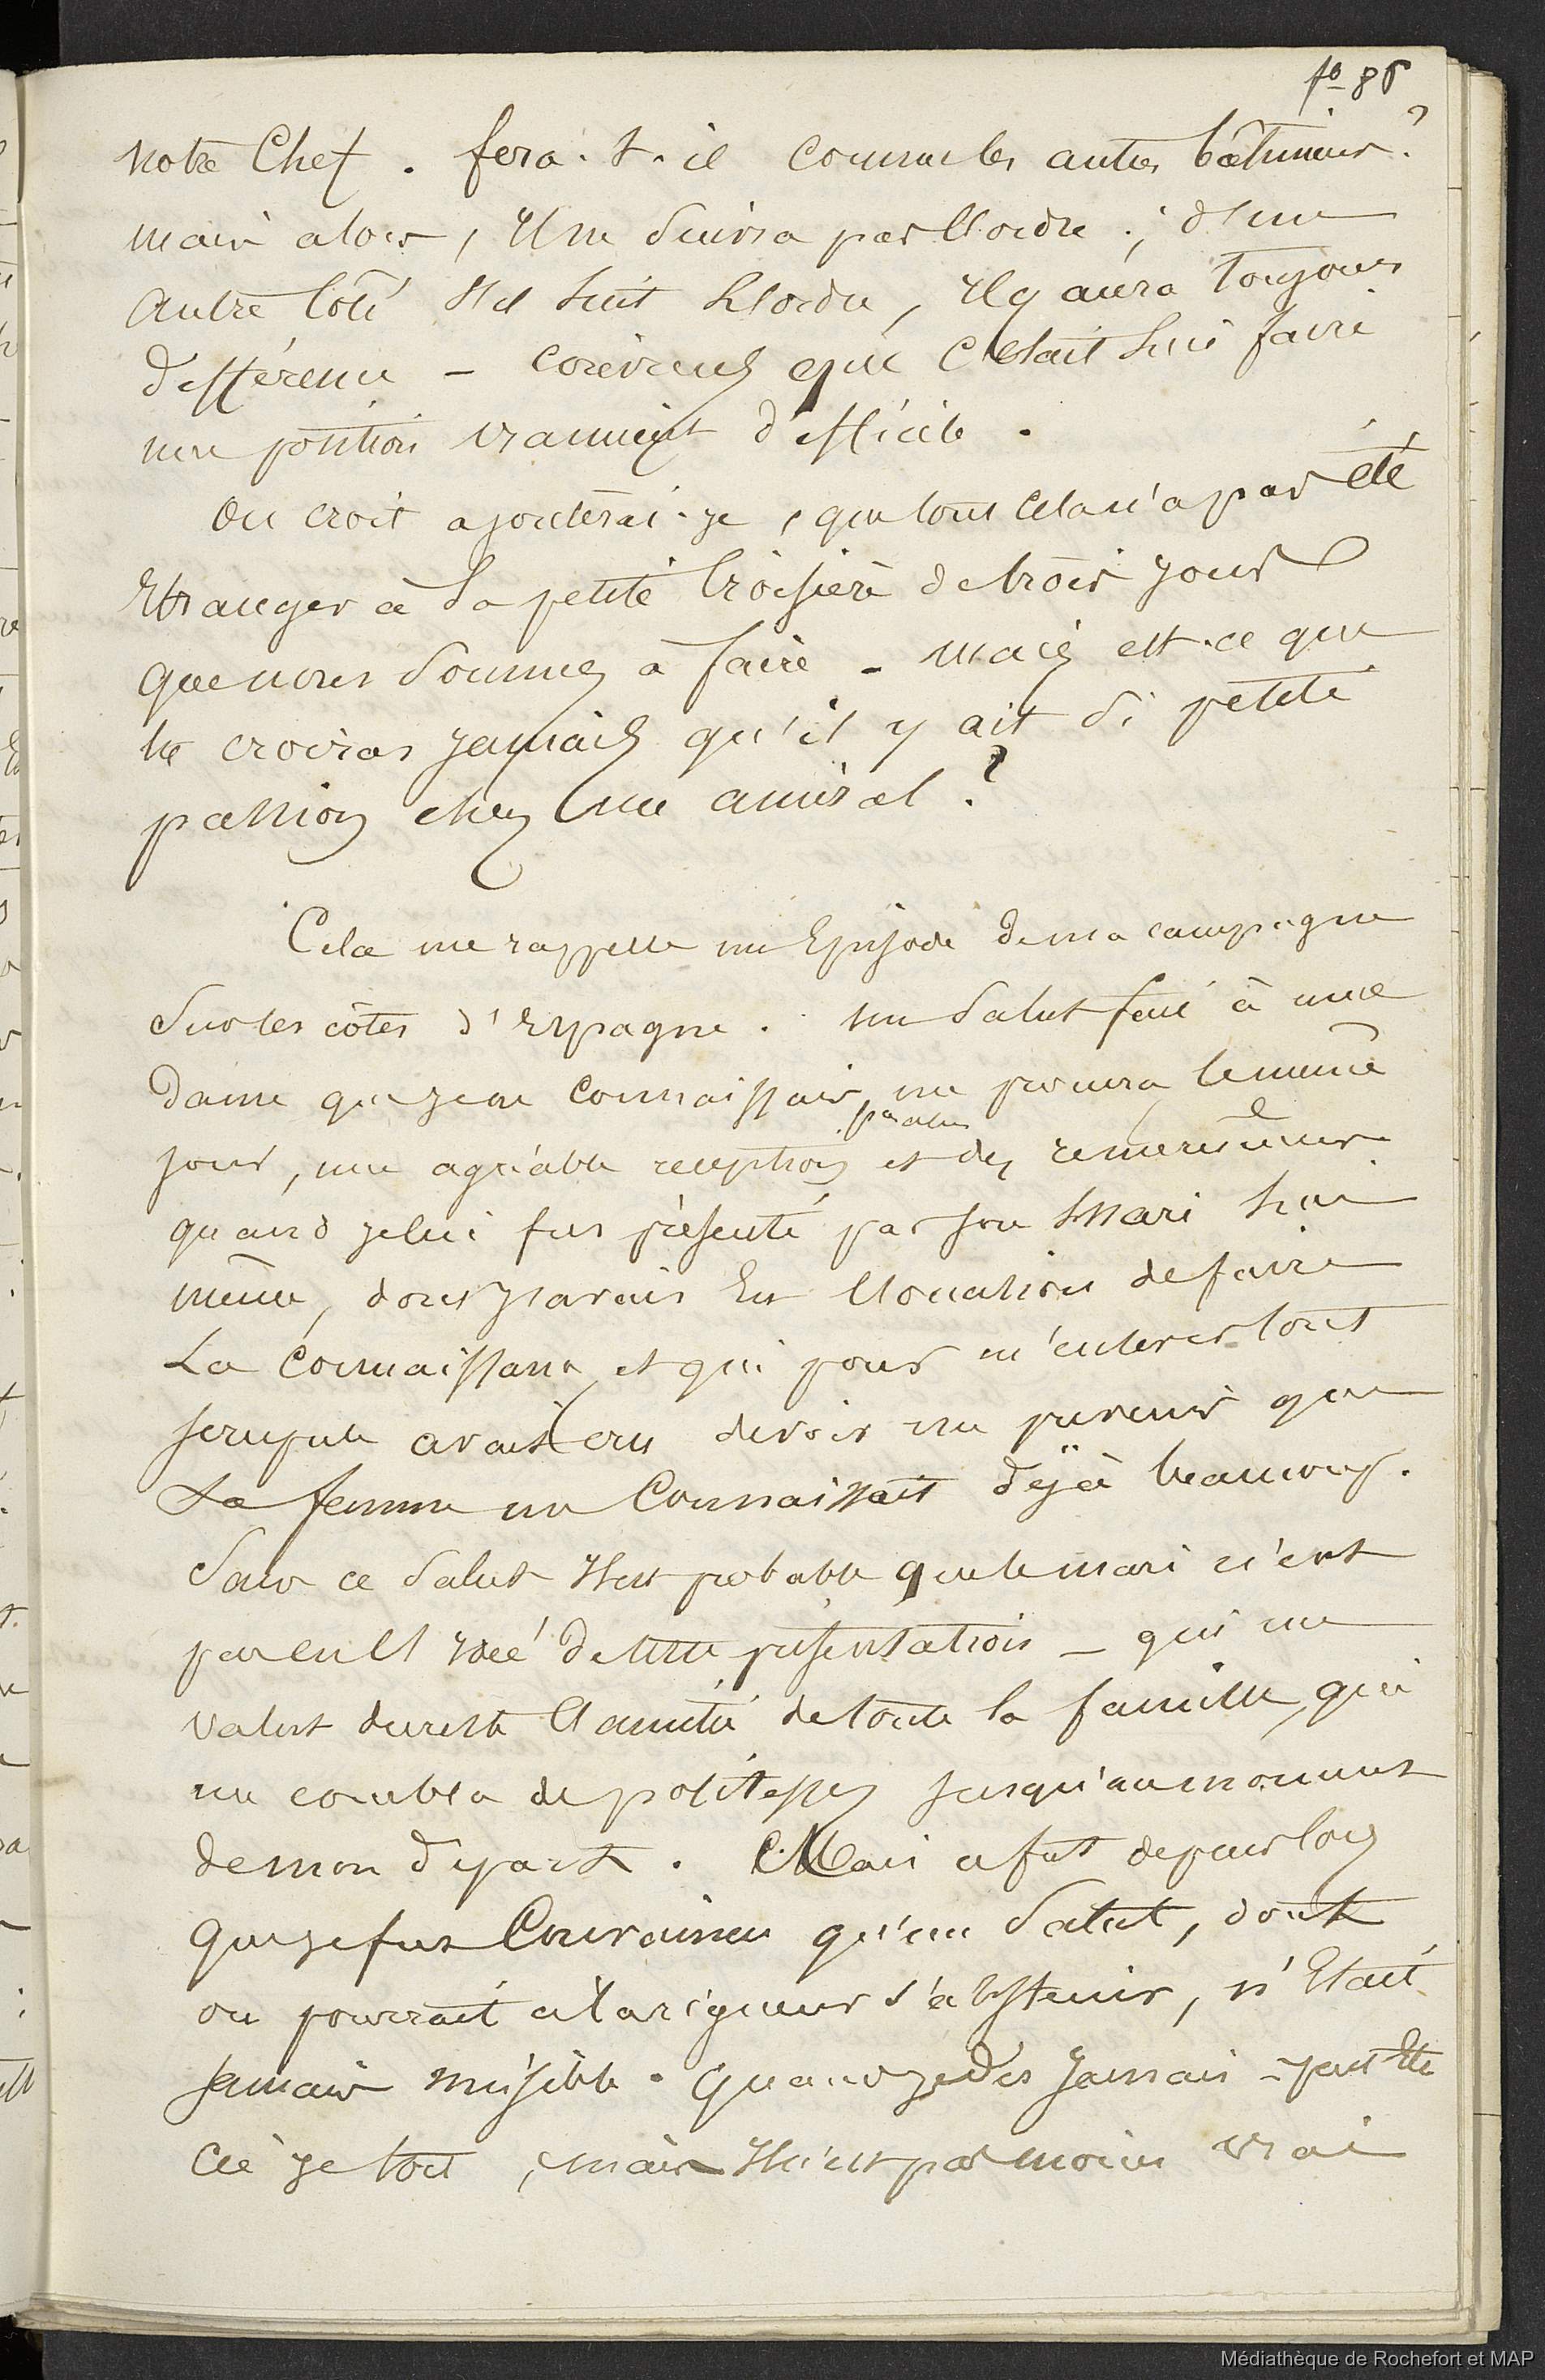 fo 86
notre Chef. fera-t-il comme les autres bâtiments?
mais alors, Il ne suivra pas l'ordre; d'une
autre coté s'il suit l'ordre, Il y aura toujours
différence - convenez que c'était lui faire
une position vraiment difficile.
On croit ajouterai-je, que tout cela n'a pas été
Etranger à la petite Croisière de trois jours
que nous sommes à faire - mais est-ce que
tu croiras jamais qu'il y ait si petite
passion chez un amiral?
Cela me rappelle un Episode de ma campagne
sur les côtes d'Espagne. un salut fait à une
Dame que je ne connaissais pas alors me procura le même
jour, une agréable reception et des remerciements
quand je lui fus présenté par son Mari lui
même, dont j'avais Eu l'occasion de faire
La connaissance, et qui pour m'enlever tout
scrupule avait cru devoir me prevenir que
Sa femme me Connaissait déjà beaucoup.
Sans ce salut Il est probable que le mari n'eut
pas eu l'idée de cette présentation - qui me
valut du reste l'amitié de toute la famille, qui
me combla de politesses jusqu'au moment
de mon départ. Mais ce fut depuis lors
que je fus Convaincu qu'un salut, dont
on pourrait à la rigueur s'abstenir, n'Etait
jamais nuisible. Quand je dis jamais - peut être
ai je tort, mais Il n'est pas moins vrai
Médiathèque de Rochefort et MAP